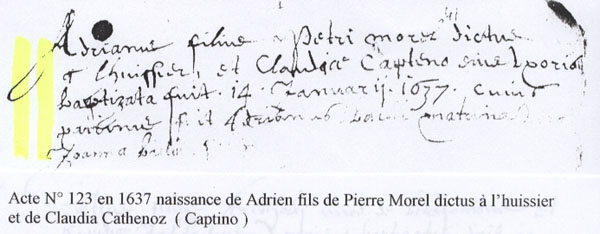 Adrianus filius Petri morel dictus
a lhuissier, et Claudae Capteno eius Uxoris
baptizata fuit. 14. Januarij. 1637. cuius
patrinus fuit Adrianus matrina
Joanna
Acte N° 123 en 1637 naissance de Adrien fils de Pierre Morel dictus à l'huissier
et de Claudia Cathenoz ( Captino )